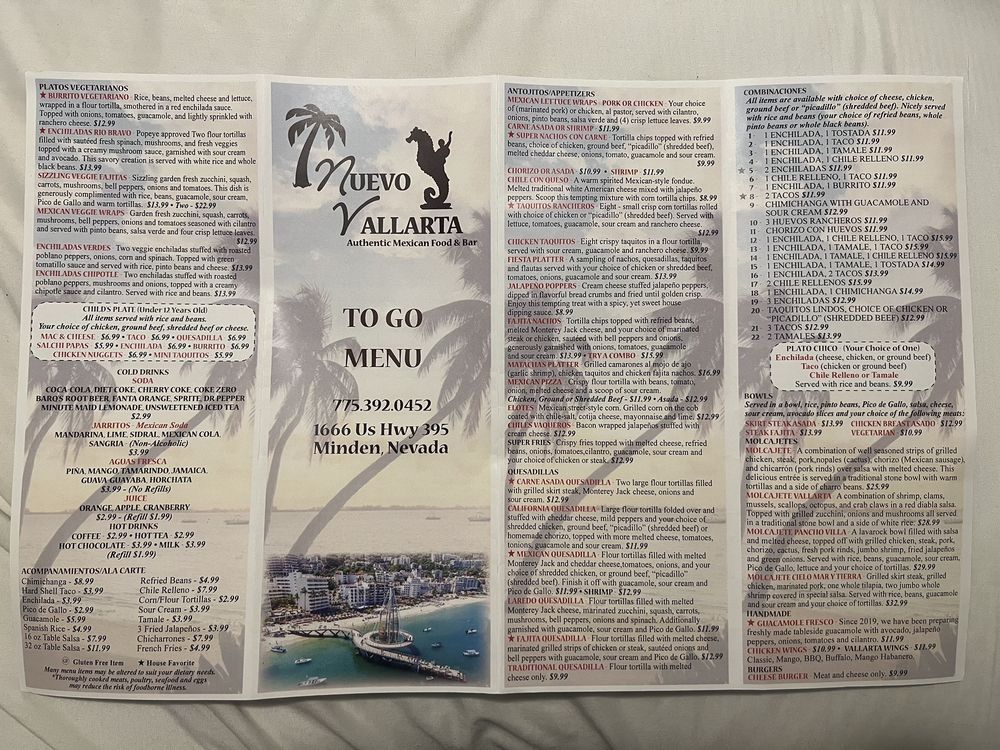 PLATOS VEGETARIANOS
★ BURRITO VEGETARIANO - Rice, beans, melted cheese and lettuce,
wrapped in a flour tortilla, smothered in a red enchilada sauce.
Topped with onions, tomatoes, guacamole, and lightly sprinkled with
ranchero cheese. $12.99
★ ENCHILADAS RIO BRAVO - Popeye approved Two flour tortillas
filled with sautéed fresh spinach, mushrooms, and fresh veggies
topped with a creamy mushroom sauce, garnished with sour cream
and avocado. This savory creation is served with white rice and whole
black beans. $13.99
SIZZLING VEGGIE FAJITAS - Sizzling garden fresh zucchini, squash,
carrots, mushrooms, bell peppers, onions and tomatoes. This dish is
generously complimented with rice, beans, guacamole, sour cream,
Pico de Gallo and warm tortillas. $13.99 • Two - $22.99
MEXICAN VEGGIE WRAPS - Garden fresh zucchini, squash, carrots,
mushrooms, bell peppers, onions and tomatoes seasoned with cilantro
and served with pinto beans, salsa verde and four crisp lettuce leaves.
$12.99
ENCHILADAS VERDES - Two veggie enchiladas stuffed with roasted
poblano peppers, onions, corn and spinach. Topped with green
tomatillo sauce and served with rice, pinto beans and cheese. $13.99
ENCHILADAS CHIPOTLE - Two enchiladas stuffed with roasted
poblano peppers, mushrooms and onions, topped with a creamy
chipotle sauce and cilantro. Served with rice and beans. $13.99
CHILD'S PLATE (Under 12 Years Old)
All items served with rice and beans.
Your choice of chicken, ground beef, shredded beef or cheese.
MAC & CHEESE $6.99 • TACO $6.99 • QUESADILLA $6.99
SALCHI PAPAS $5.99 • ENCHILADA $6.99 • BURRITO $6.99
CHICKEN NUGGETS $6.99 • MINI TAQUITOS $5.99
COLD DRINKS
SODA
COCA COLA, DIET COKE, CHERRY COKE, COKE ZERO
BARQS ROOT BEER, FANTA ORANGE, SPRITE, DR PEPPER
MINUTE MAID LEMONADE, UNSWEETENED ICED TEA
$2.99
JARRITOS - Mexican Soda
MANDARINA, LIME, SIDRAL, MEXICAN COLA,
SANGRIA - (Non-Alcoholic)
$3.99
AGUAS FRESCA
PIÑA, MANGO, TAMARINDO, JAMAICA,
GUAVA-GUAYABA, HORCHATA
$3.99 - (No Refills)
JUICE
ORANGE, APPLE, CRANBERRY
$2.99 - (Refill $1.99)
HOT DRINKS
COFFEE - $2.99 • HOT TEA - $2.99
HOT CHOCOLATE - $3.99 • MILK - $3.99
(Refill $1.99)
ACOMPANAMIENTOS/ALA CARTE
Chimichanga - $8.99
Hard Shell Taco - $3.99
Enchilada - $3.99
Pico de Gallo - $2.99
Guacamole - $5.99
Spanish Rice - $4.99
16 oz Table Salsa - $7.99
32 oz Table Salsa - $11.99
Refried Beans - $4.99
Chile Relleno - $7.99
Corn/Flour Tortillas - $2.99
Sour Cream - $3.99
Tamale - $3.99
3 Fried Jalapeños - $3.99
Chicharrones - $7.99
French Fries - $4.99
Gluten Free Item ★ House Favorite
Many menu items may be altered to suit your dietary needs.
*Thoroughly cooked meats, poultry, seafood and eggs
may reduce the risk of foodborne illness.
NUEVO
VALLARTA
Authentic Mexican Food & Bar
TO GO
MENU
775.392.0452
1666 Us Hwy 395
Minden, Nevada
ANTOJITOS/APPETIZERS
MEXICAN LETTUCE WRAPS - PORK OR CHICKEN - Your choice
of (marinated pork) or chicken, al pastor, served with cilantro,
onions, pinto beans, salsa verde and (4) crisp lettuce leaves. $9.99
CARNE ASADA OR SHRIMP - $11.99
★ SUPER NACHOS CON CARNE - Tortilla chips topped with refried
beans, choice of chicken, ground beef, "picadillo" (shredded beef),
melted cheddar cheese, onions, tomato, guacamole and sour cream.
$9.99
CHORIZO OR ASADA - $10.99 • SHRIMP - $11.99
CHILE CON QUESO - A warm spirited Mexican-style fondue.
Melted traditional white American cheese mixed with jalapeño
peppers. Scoop this tempting mixture with corn tortilla chips. $8.99
★ TAQUITOS RANCHEROS - Eight - small crisp corn tortillas rolled
with choice of chicken or "picadillo" (shredded beef). Served with
lettuce, tomatoes, guacamole, sour cream and ranchero cheese.
$12.99
CHICKEN TAQUITOS - Eight crispy taquitos in a flour tortilla,
served with sour cream, guacamole and ranchero cheese. $9.99
FIESTA PLATTER - A sampling of nachos, quesadillas, taquitos
and flautas served with your choice of chicken or shredded beef,
tomatoes, onions, guacamole and sour cream. $13.99
JALAPENO POPPERS - Cream cheese stuffed jalapeño peppers,
dipped in flavorful bread crumbs and fried until golden crisp.
Enjoy this tempting treat with a spicy, yet sweet house
dipping sauce. $8.99
FAJITA NACHOS - Tortilla chips topped with refried beans,
Monterey Jack cheese, and your choice of marinated
steak or chicken, sautéed with bell peppers and onions,
generously garnished with onions, tomatoes, guacamole
and sour cream. $13.99 • TRY A COMBO - $15.99
MATACHAS PLATTER - Grilled camarones al mojo de ajo
(garlic shrimp), chicken taquitos and chicken fajita nachos. $16.99
MEXICAN PIZZA - Crispy flour tortilla with beans, tomato,
onion, melted cheese and a scoop of sour cream.
Chicken, Ground or Shredded Beef - $11.99 • Asada - $12.99
ELOTES - Mexican street-style corn. Grilled corn on the cob
coated with chile-salt, cotija cheese, mayonnaise and lime. $12.99
CHILES VAQUEROS - Bacon wrapped jalapeños stuffed with
cream cheese. $12.99
SUPER FRIES - Crispy fries topped with melted cheese, refried
beans, onions, tomatoes, cilantro, guacamole, sour cream and
your choice of chicken or steak. $12.99
QUESADILLAS
★ CARNE ASADA QUESADILLA - Two large flour tortillas filled
with grilled skirt steak, Monterey Jack cheese, onions and
sour cream. $12.99
CALIFORNIA QUESADILLA - Large flour tortilla folded over and
stuffed with cheddar cheese, mild peppers and your choice of
shredded chicken, ground beef, "picadillo" (shredded beef) or
homemade chorizo, topped with more melted cheese, tomatoes,
tonions, guacamole and sour cream. $11.99
★ MEXICAN QUESADILLA - Flour tortillas filled with melted
Monterey Jack and cheddar cheese, tomatoes, onions, and your
choice of shredded chicken, or ground beef, "picadillo"
(shredded beef). Finish it off with guacamole, sour cream and
Pico de Gallo. $11.99 • SHRIMP - $12.99
LAREDO QUESADILLA - Flour tortillas filled with melted
Monterey Jack cheese, marinated zucchini, squash, carrots,
mushrooms, bell peppers, onions and spinach. Additionally
garnished with guacamole, sour cream and Pico de Gallo. $11.99
★ FAJITA QUESADILLA - Flour tortillas filled with melted cheese,
marinated grilled strips of chicken or steak, sautéed onions and
bell peppers with guacamole, sour cream and Pico de Gallo. $12.99
TRADITIONAL QUESADILLA - Flour tortilla with melted
cheese only. $9.99
COMBINACIONES
All items are available with choice of cheese, chicken,
ground beef or "picadillo" (shredded beef). Nicely served
with rice and beans (your choice of refried beans, whole
pinto beans or whole black beans).
1 - 1 ENCHILADA, 1 TOSTADA $11.99
2 - 1 ENCHILADA, 1 TACO $11.99
3 - 1 ENCHILADA, 1 TAMALE $11.99
4 - 1 ENCHILADA, 1 CHILE RELLENO $11.99
★ 5 - 2 ENCHILADAS $11.99
6 - 1 CHILE RELLENO, 1 TACO $11.99
7 - 1 ENCHILADA, 1 BURRITO $11.99
★ 8 - 2 TACOS $11.99
9 - CHIMICHANGA WITH GUACAMOLE AND
SOUR CREAM $12.99
10 - 3 HUEVOS RANCHEROS $11.99
11 - CHORIZO CON HUEVOS $11.99
12 - 1 ENCHILADA, 1 CHILE RELLENO, 1 TACO $15.99
13 - 1 ENCHILADA, 1 TAMALE, 1 TACO $15.99
14 - 1 ENCHILADA, 1 TAMALE, 1 CHILE RELLENO $15.99
15 - 1 ENCHILADA, 1 TAMALE, 1 TOSTADA $14.99
16 - 1 ENCHILADA, 2 TACOS $13.99
17 - 2 CHILE RELLENOS $15.99
18 - 1 ENCHILADA, 1 CHIMICHANGA $14.99
19 - 3 ENCHILADAS $12.99
20 - TAQUITOS LINDOS, CHOICE OF CHICKEN OR
"PICADILLO" (SHREDDED BEEF) $12.99
21 - 3 TACOS $12.99
22 - 2 TAMALES $13.99
PLATO CHICO - (Your Choice of One)
Enchilada (cheese, chicken, or ground beef)
Taco (chicken or ground beef)
Chile Relleno or Tamale
Served with rice and beans. $9.99
BOWLS
Served in a bowl, rice, pinto beans, Pico de Gallo, salsa, cheese,
sour cream, avocado slices and your choice of the following meats:
SKIRT STEAK ASADA $13.99 CHICKEN BREAST ASADO $12.99
STEAK FAJITA $13.99 VEGETARIAN $10.99
MOLCAJETES
MOLCAJETE - A combination of well seasoned strips of grilled
chicken, steak, pork, nopales (cactus), chorizo (Mexican sausage),
and chicarrón (pork rinds) over salsa with melted cheese. This
delicious entrée is served in a traditional stone bowl with warm
tortillas and a side of charro beans. $25.99
MOLCAJETE VALLARTA - A combination of shrimp, clams,
mussels, scallops, octopus, and crab claws in a red diabla salsa.
Topped with grilled zucchini, onions and mushrooms all served
in a traditional stone bowl and a side of white rice. $28.99
MOLCAJETE PANCHO VILLA - A lavarock bowl filled with salsa
and melted cheese, topped off with grilled chicken, steak, pork,
chorizo, cactus, fresh pork rinds, jumbo shrimp, fried jalapeños
and green onions. Served with rice, beans, guacamole, sour cream,
Pico de Gallo, lettuce and your choice of tortillas. $29.99
MOLCAJETE CIELO MAR Y TIERRA - Grilled skirt steak, grilled
chicken, marinated pork, one whole tilapia, two jumbo whole
shrimp covered in special salsa. Served with rice, beans, guacamole
and sour cream and your choice of tortillas. $32.99
HANDMADE
★ GUACAMOLE FRESCO - Since 2019, we have been preparing
freshly made tableside guacamole with avocado, jalapeño
peppers, onions, tomatoes and cilantro. $11.99
CHICKEN WINGS - $10.99 • VALLARTA WINGS - $11.99
Classic, Mango, BBQ, Buffalo, Mango Habanero.
BURGERS
CHEESE BURGER - Meat and cheese only. $9.99